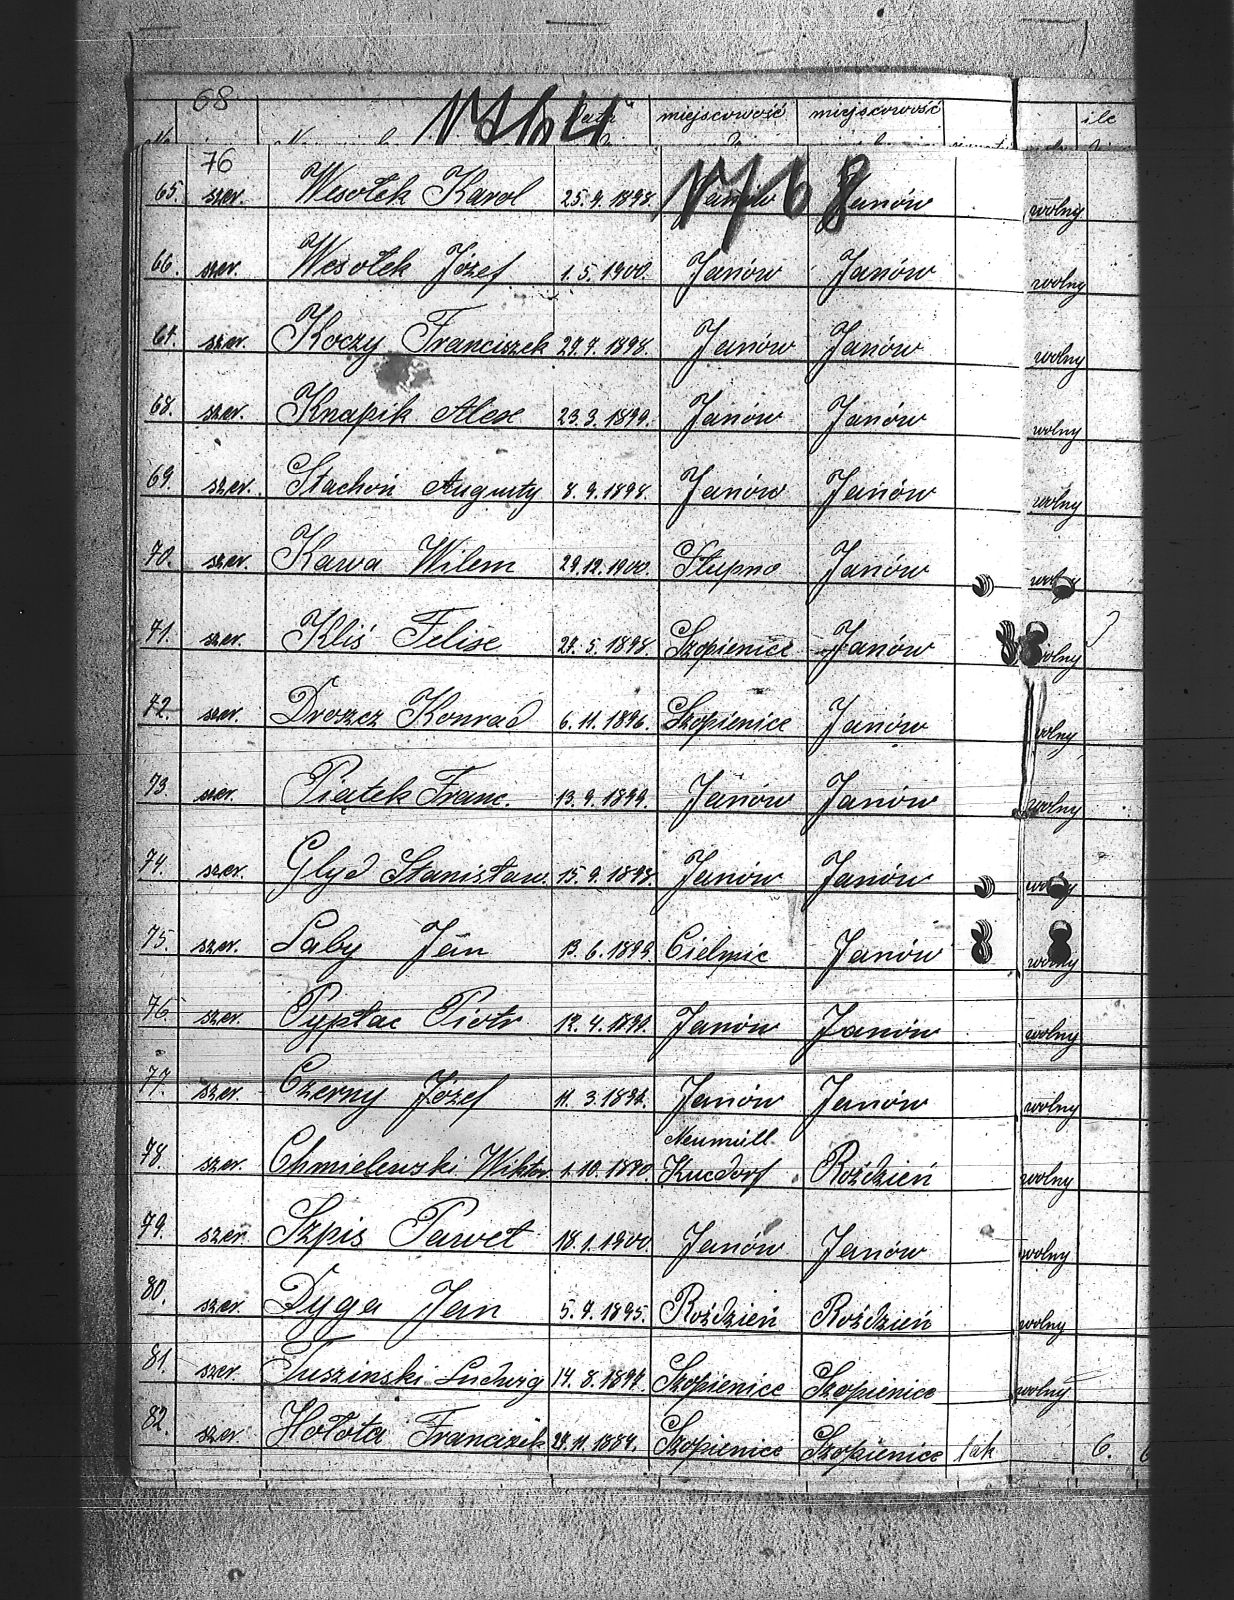 68
1764 data miejscowość miejscowość ile
76 1768
65. szer. Wesołek Karol 25.9.1898. Janów Janów wolny
66. szer. Wesołek Józef 1.5.1900. Janów Janów wolny
67. szer. Koczy Franciszek 27.7.1898. Janów Janów wolny
68. szer. Knapik Alex 23.3.1899. Janów Janów wolny
69. szer. Stachoń Augusty 8.9.1898. Janów Janów wolny
70. szer. Kawa Wilem 29.12.1900. Słupno Janów wolny
71. szer. Kliś Felix 27.5.1898 Szopienice Janów wolny
72. szer. Droszcz Konrad 6.11.1896. Szopienice Janów wolny
73. szer. Piątek Franc. 13.9.1899. Janów Janów wolny
74. szer. Glyd Stanisław. 15.9.1898. Janów Janów wolny
75. szer. Laby Jan 13.6.1899 Cielmic Janów wolny
76. szer. Pyptac Piotr Janów Janów wolny
77. szer. Czerny Józef Janów Janów wolny
Neumüll
78. szer. Chmielewski Wiktor 1.10.1890. Roździeń wolny
79. szer. Szpis Paweł 18.1.1900. Janów Janów wolny
80. szer. Dyga Jan 5.7.1895. Roździeń Roździeń wolny
81. szer. Tuszinski Ludwig Szopienice Szopienice wolny
82. szer. Hołota Franciszk 27.11.1884. Szopienice Szopienice tak 6.